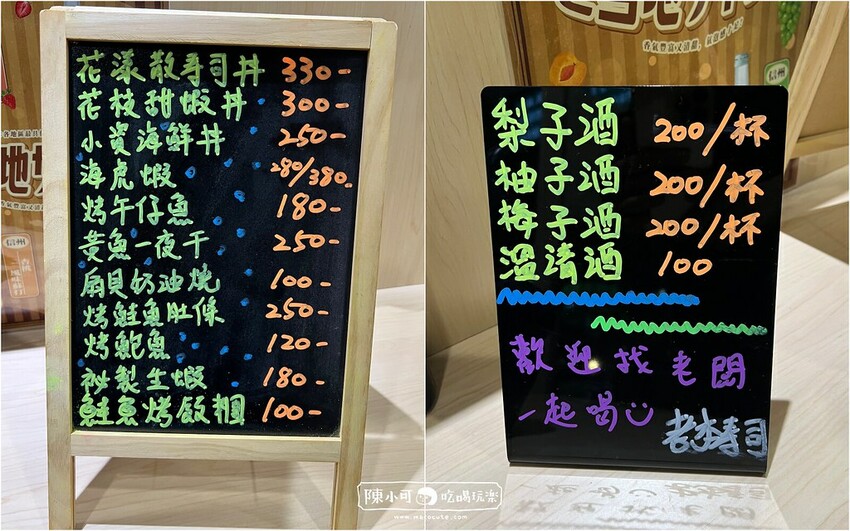 花漾散壽司丼 330-
花枝甜蝦丼 300-
小資海鮮丼 250-
海虎蝦 280/380.
烤午仔魚 180-
黃魚一夜干 250-
扇貝奶油燒 100-
烤鮭魚肚條 250-
烤鮑魚 120-
祕製生蝦 180-
鮭魚烤飯糰 100-
信州
梨子酒 200/杯
柚子酒 200/杯
梅子酒 200/杯
溫清酒 100
歡迎找老闆
一起喝
老李壽司
信州
陳小可 吃喝玩樂